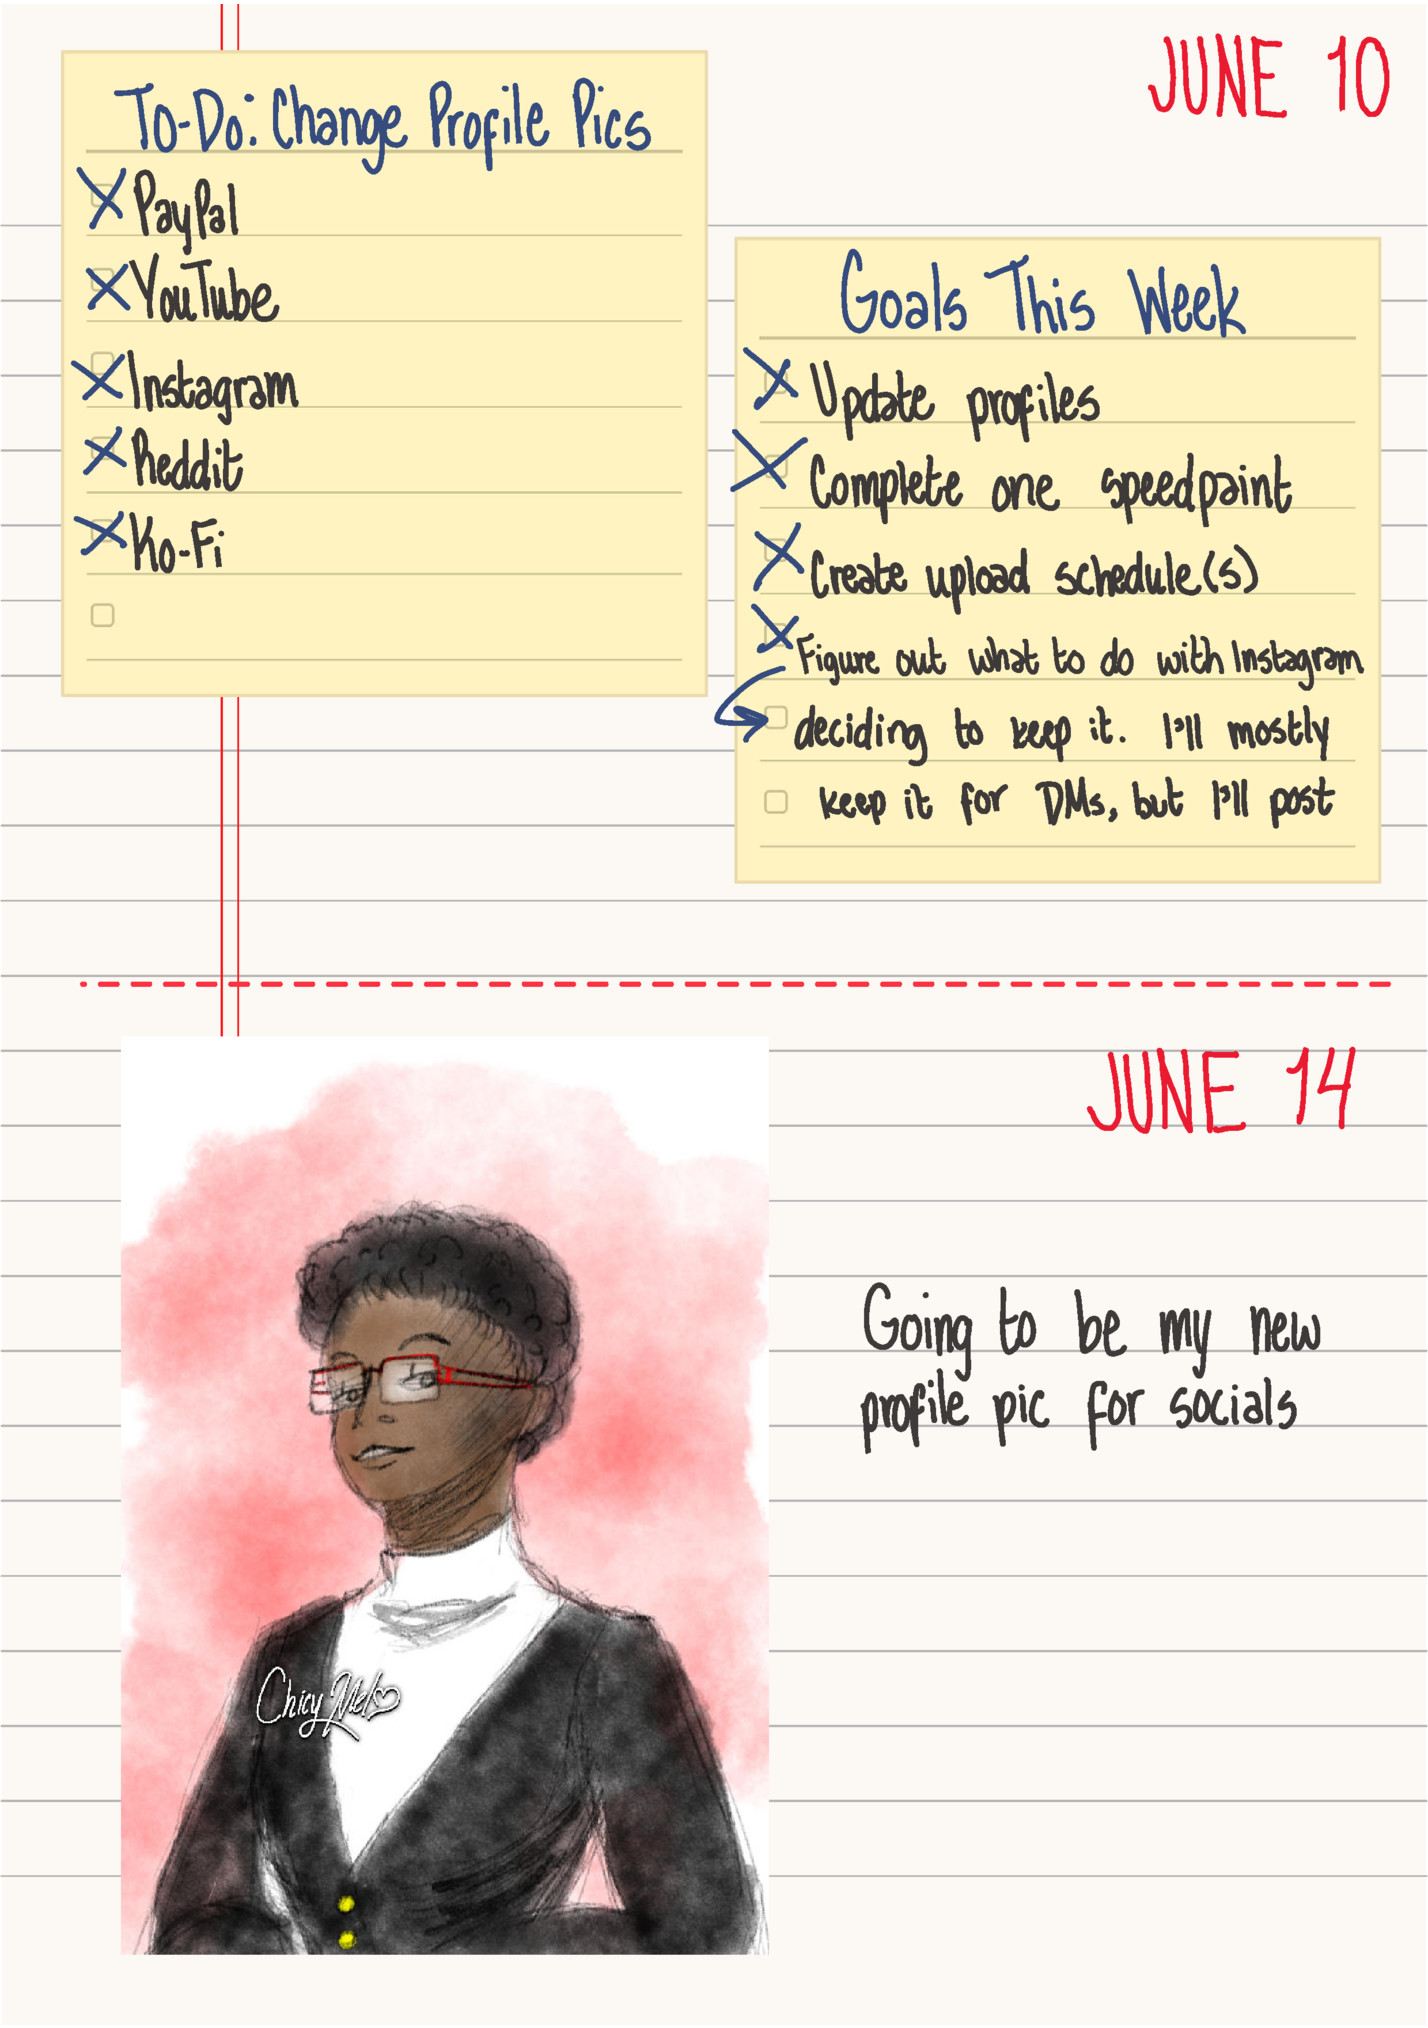 JUNE 10
To-Do: Change Profile Pics
PayPal
YouTube
Instagram
Reddit
Ko-Fi
Goals This Week
Update profiles
Complete one speedpaint
Create upload schedule(s)
Figure out what to do with Instagram
deciding to keep it. I'll mostly
keep it for DMs, but I'll post
JUNE 14
Going to be my new
profile pic for socials
Chicy Mel